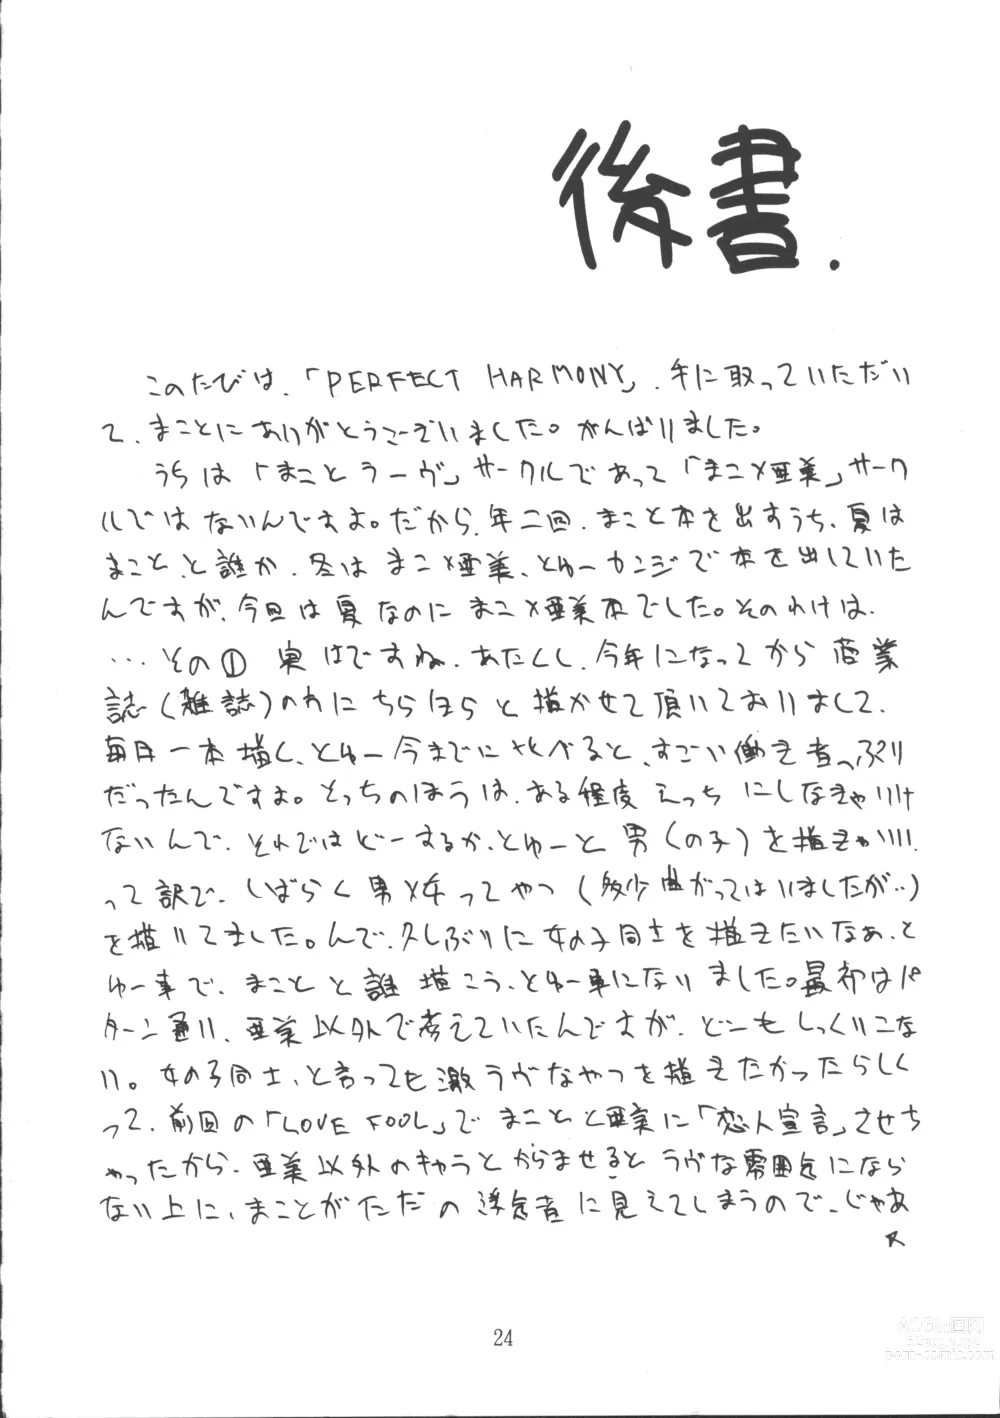 後書.
このたびは、「PERFECT HARMONY」、手に取っていただい
て、まことにありがとうございました。がんばりました。
うちは「まことラーヴ」サークルであって「まこ×亜美」サーク
ルではないんですよ。だから、年二回、まこと本を出すうち、夏は
まこと、と誰か、冬はまこ×亜美、とゆーカンジで本を出していた
んですが、今回は夏なのにまこ×亜美本でした。そのわけは、
…その① 実はですね、あたくし、今年になってから商業
誌(雑誌)のわにちらほらと描かせて頂いておりまして、
毎月一本描く、とゆー今までに比べると、すごい働き者っぷり
だったんですよ。そっちのほうは、ある程度えっちにしなきゃいけ
ないんで、それではどーするか、とゆーと男(の子)を描きゃいい、
って訳で、しばらく男×女ってやつ(多少曲がってはいましたが‥)
を描いてました。んで、久しぶりに女の子同士を描きたいなぁ、と
ゆー事で、まことと誰描こう、とゆー事になりました。最初はパ
ターン通り、亜美以外で考えていたんですが、どーもしっくりこな
い。女の子同士、と言っても激ラヴなやつを描きたかったらしく
って、前回の「LOVE FOOL」でまことと亜美に「恋人宣言」させち
ゃったから、亜美以外のキャラとからませるとラヴな雰囲気になら
ない上に、まことがただの浮気者に見えてしまうので、じゃあ
24